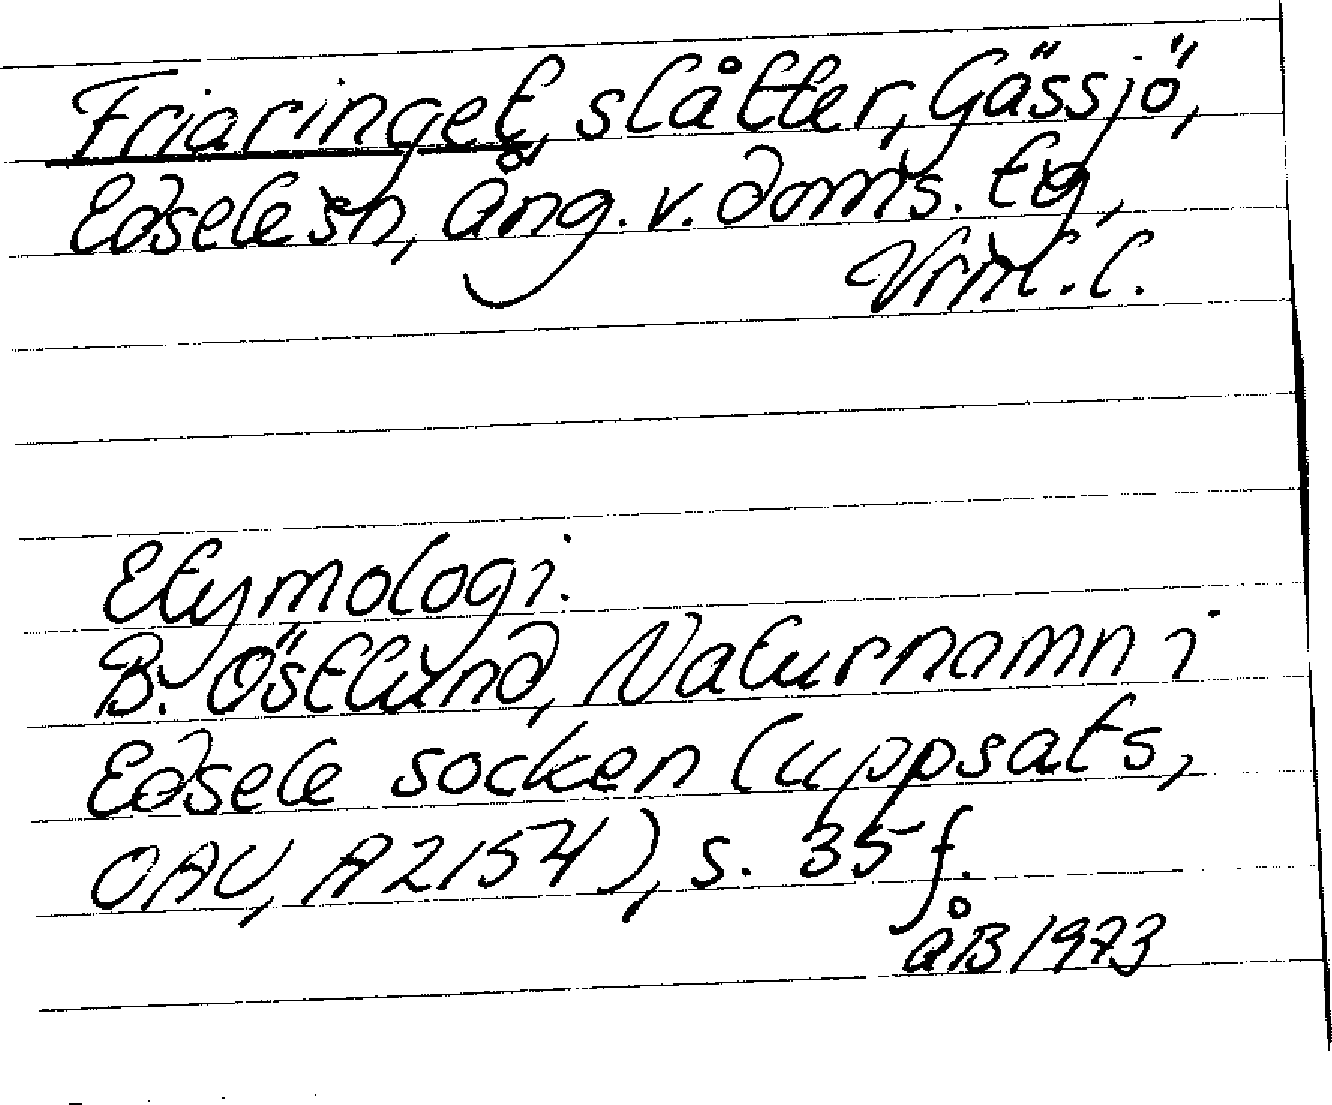 Friaringet, slåtter, Gässjö,
Edsele sn, Ång. v. doms. tg,
Vrml. l.
Etymologi.
B. Östlund, Naturnamn i
Edsele socken (uppsats,
OAU, A 2154), s. 35 f.
ÅB 1973